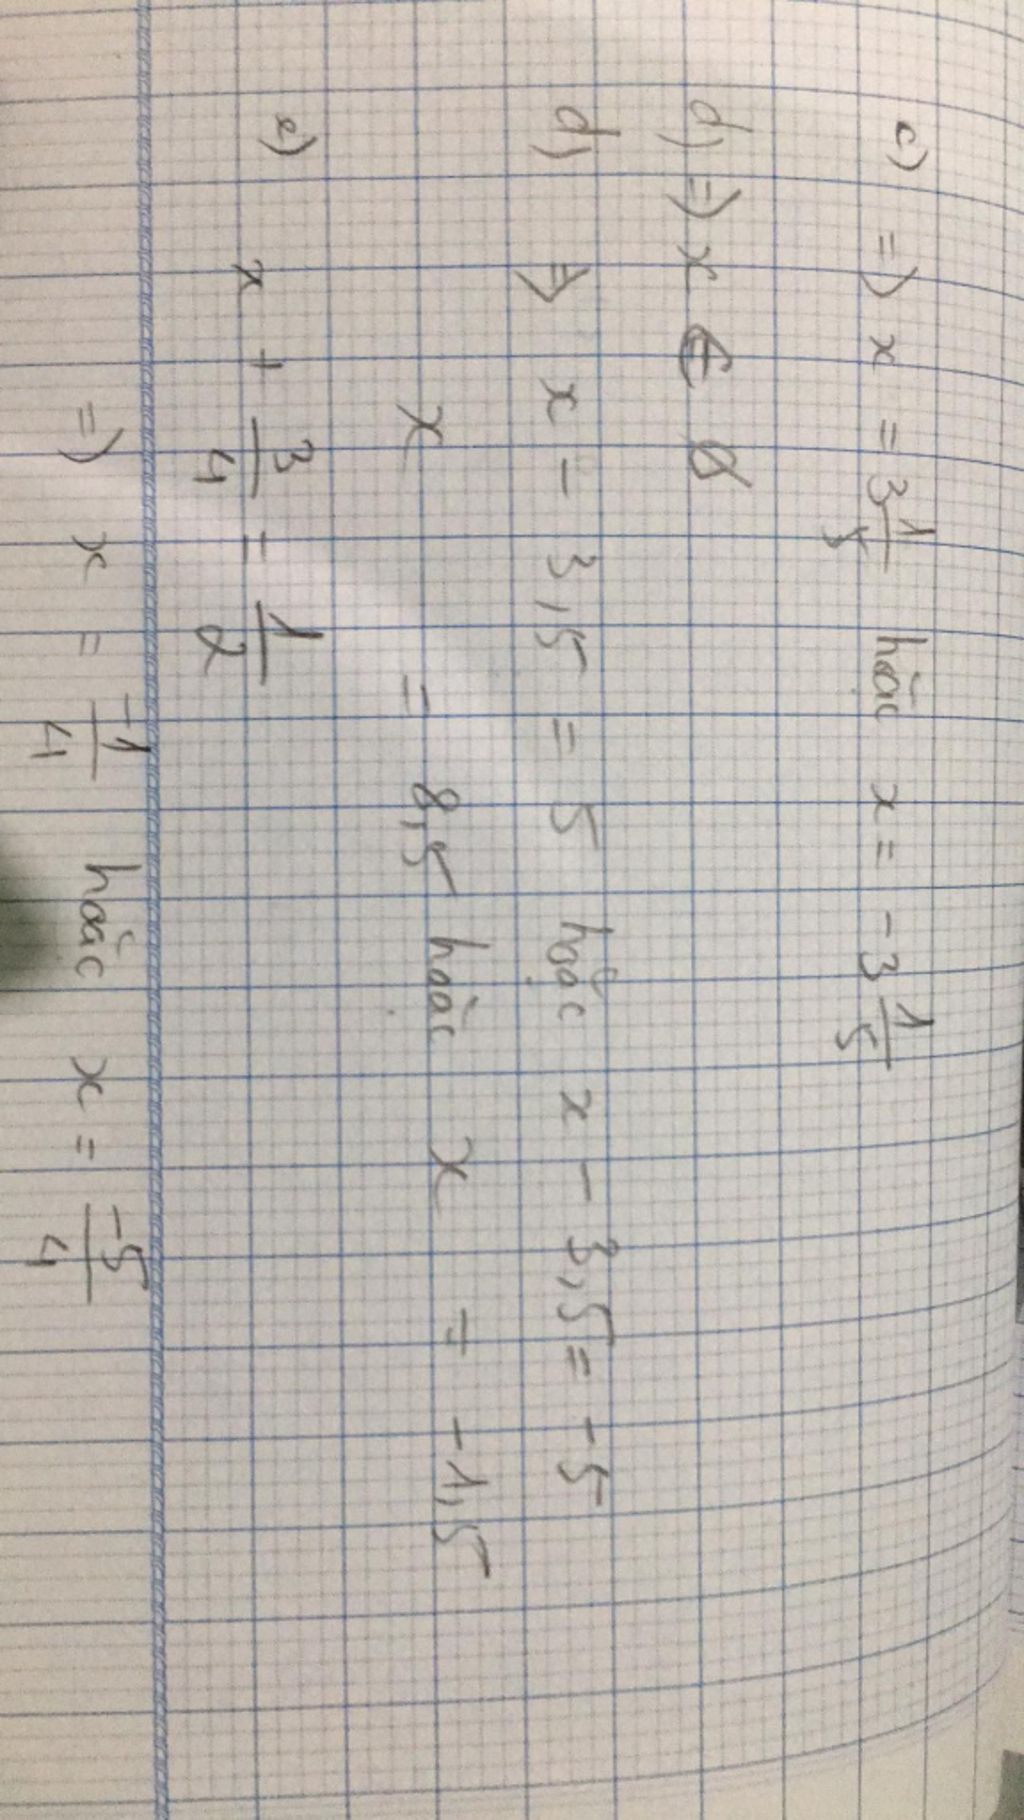 c) => x = 3 1/5 hoặc x = - 3 1/5
d) => x ∈ ∅
d) => x - 3,5 = 5 hoặc x - 3,5 = -5
x = 8,5 hoặc x = -1,5
e) x + 3/4 = 1/2
=> x = -1/4 hoặc x = -5/4